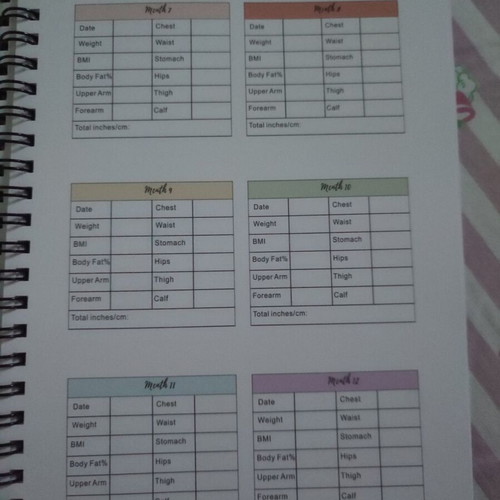 Month 7
Date Chest
Weight Waist
BMI Stomach
Body Fat% Hips
Upper Arm Thigh
Forearm Calf
Total inches/cm:
Month 8
Date Chest
Weight Waist
BMI Stomach
Body Fat% Hips
Upper Arm Thigh
Forearm Calf
Total inches/cm:
Month 9
Date Chest
Weight Waist
BMI Stomach
Body Fat% Hips
Upper Arm Thigh
Forearm Calf
Total inches/cm:
Month 10
Date Chest
Weight Waist
BMI Stomach
Body Fat% Hips
Upper Arm Thigh
Forearm Calf
Total inches/cm:
Month 11
Date Chest
Weight Waist
BMI Stomach
Body Fat% Hips
Upper Arm Thigh
Month 12
Date Chest
Weight Waist
BMI Stomach
Body Fat% Hips
Upper Arm Thigh
Forearm Calf